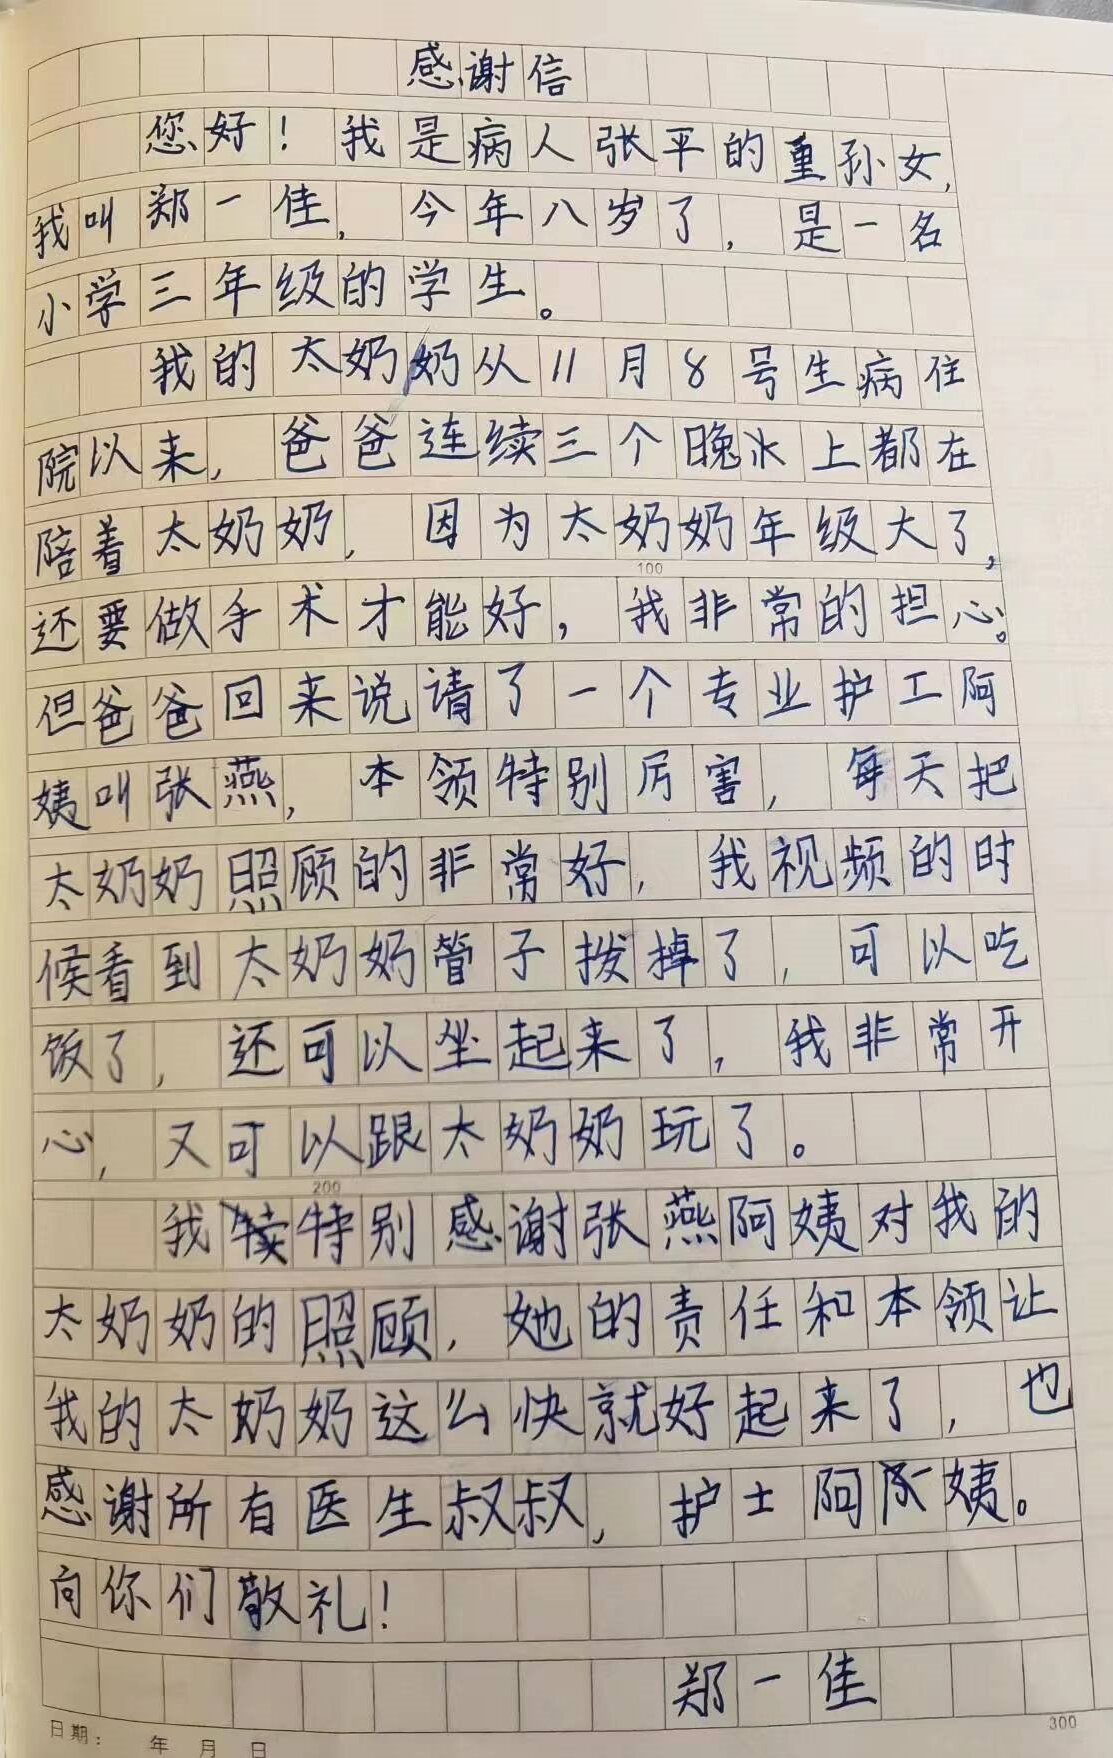 感谢信
您好！我是病人张平的重孙女，
我叫郑一佳，今年八岁了，是一名
小学三年级的学生。
我的太奶奶从11月8号生病住
院以来，爸爸连续三个晚上都在
陪着太奶奶，因为太奶奶年级大了，
100
还要做手术才能好，我非常的担心。
但爸爸回来说请了一个专业护工阿
姨叫张燕，本领特别厉害，每天把
太奶奶照顾的非常好，我视频的时
候看到太奶奶管子拨掉了，可以吃
饭了，还可以坐起来了，我非常开
心，又可以跟太奶奶玩了。
200
我特别感谢张燕阿姨对我的
太奶奶的照顾，她的责任和本领让
我的太奶奶这么快就好起来了，也
感谢所有医生叔叔，护士阿姨。
向你们敬礼！
郑一佳
300
日期： 年 月 日